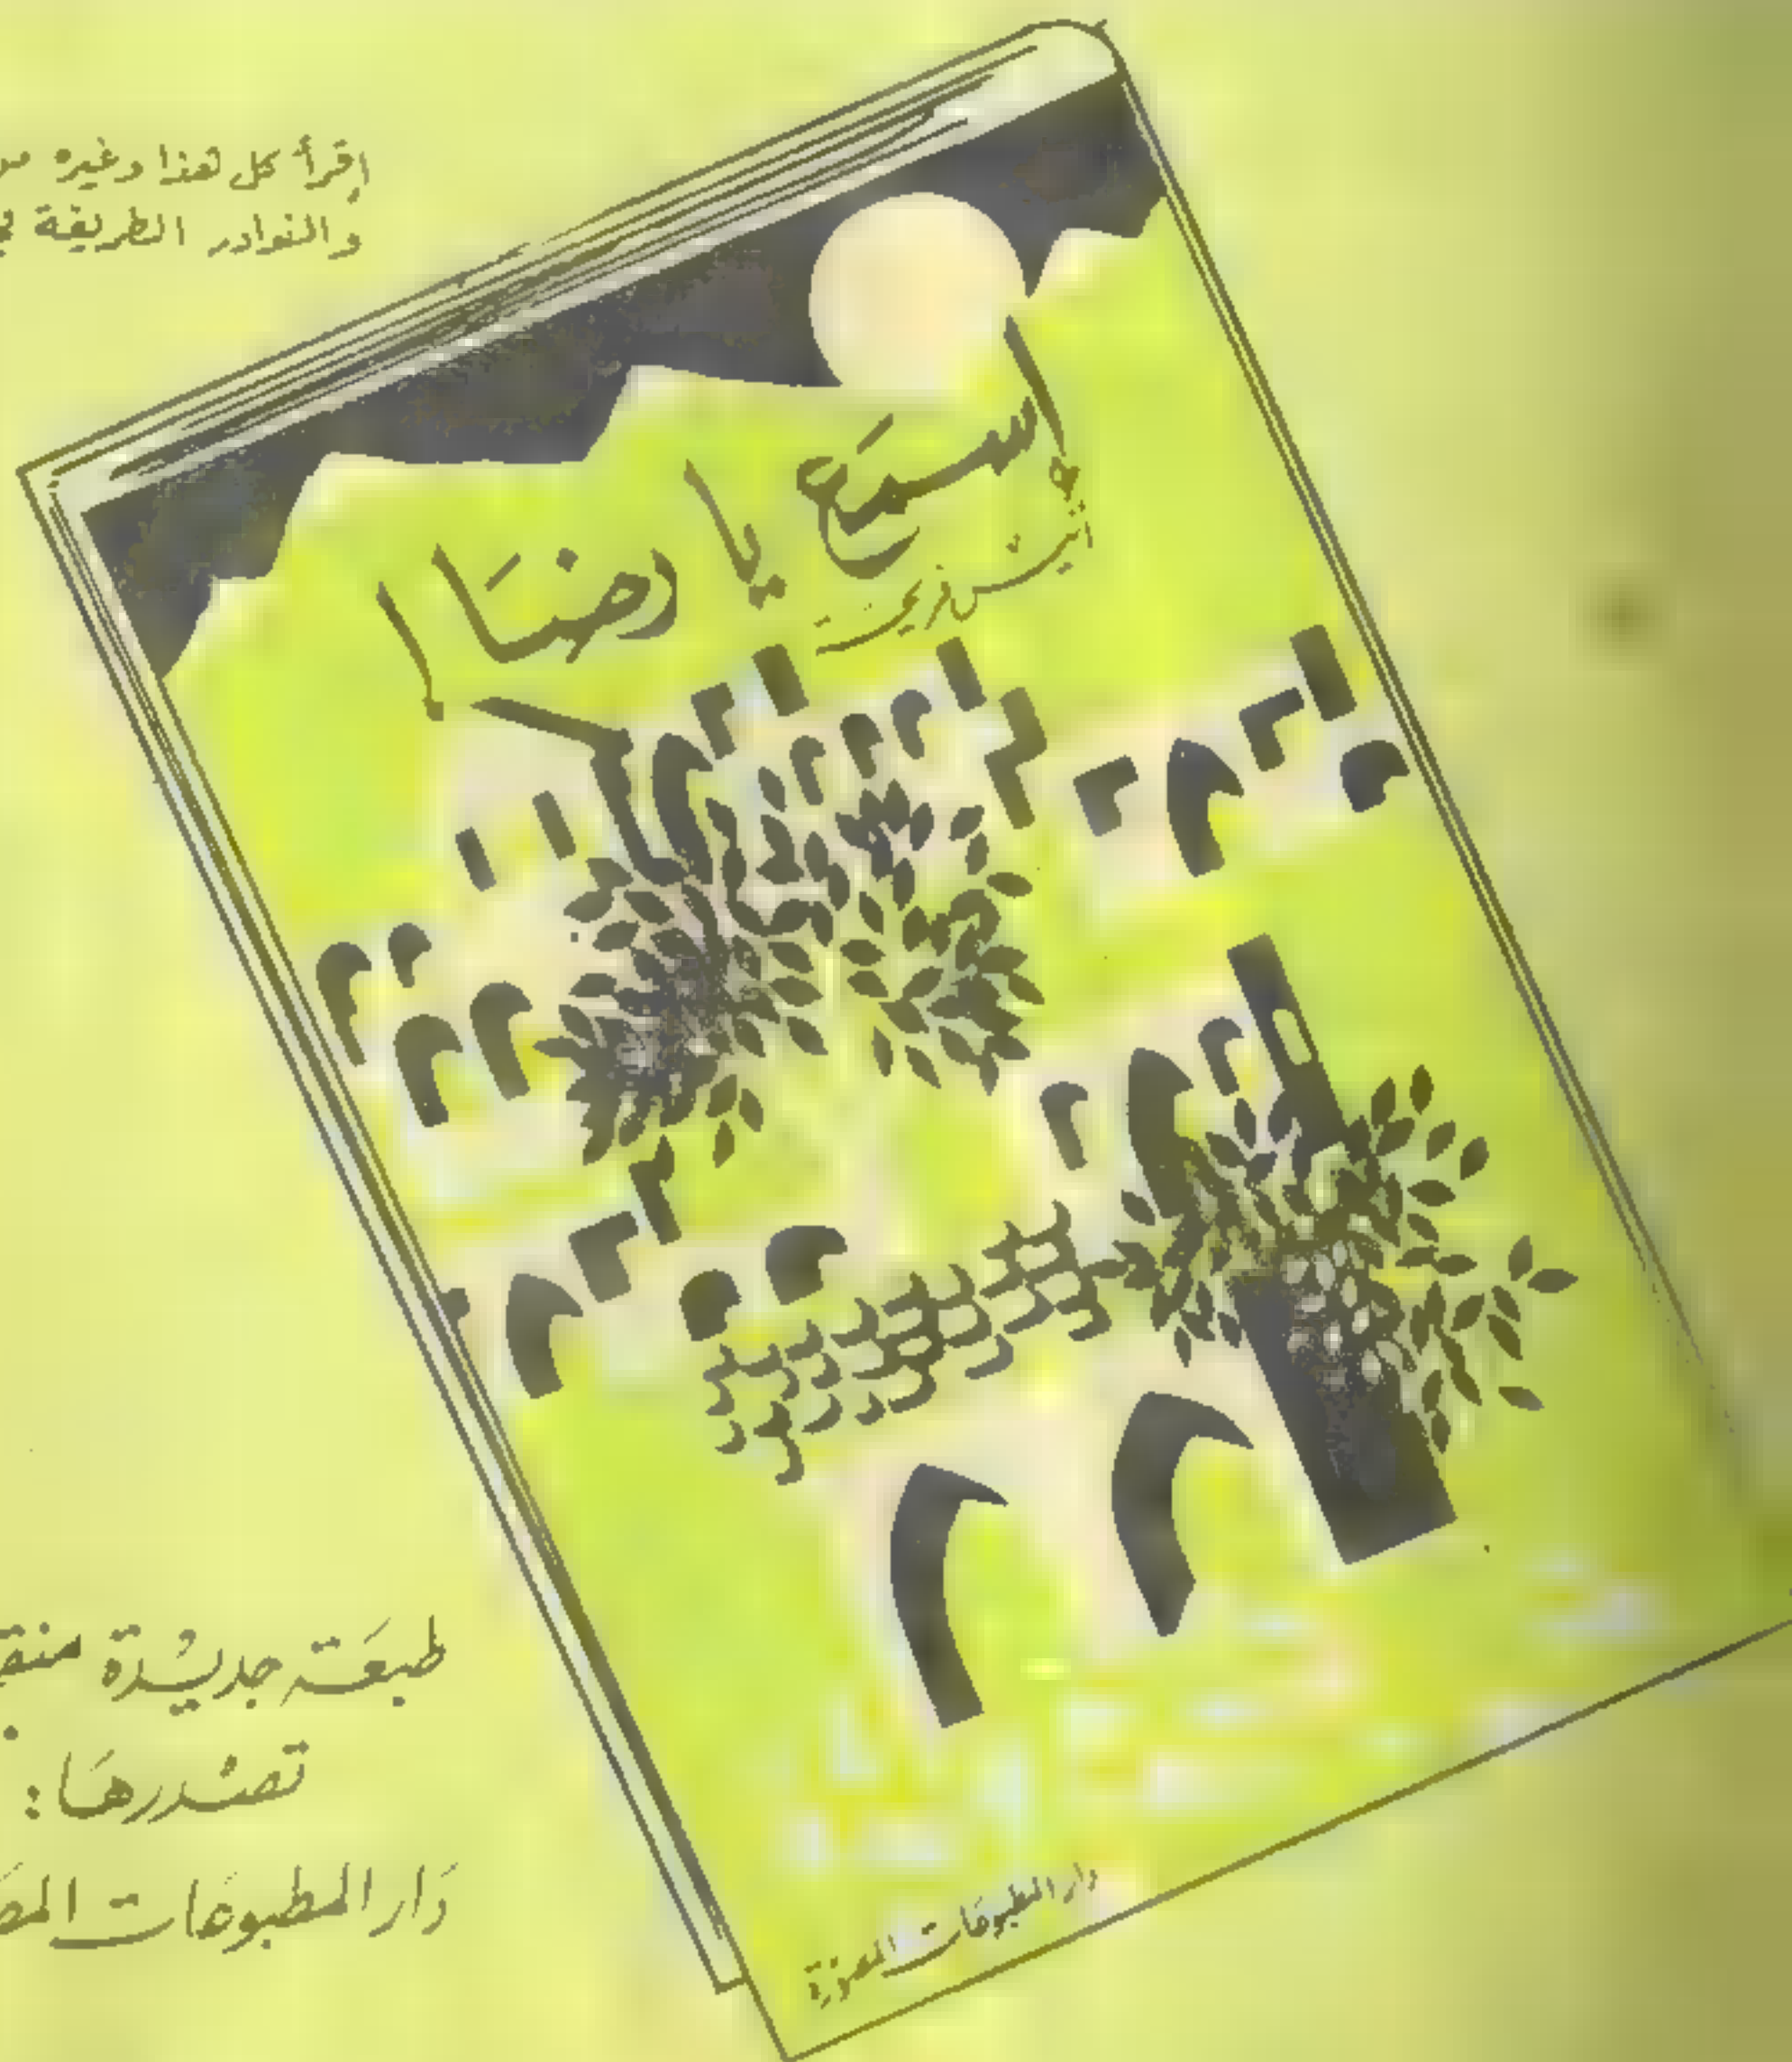 إقرأ كل هذا وغيره
والنوادر الطريفة
إسمَع يا رضَا !
أنيس فريحة
دار المطبوعات المصوّرة
طبعَة جديْدة
تصْدرهَا:
دَار المطبوعَات